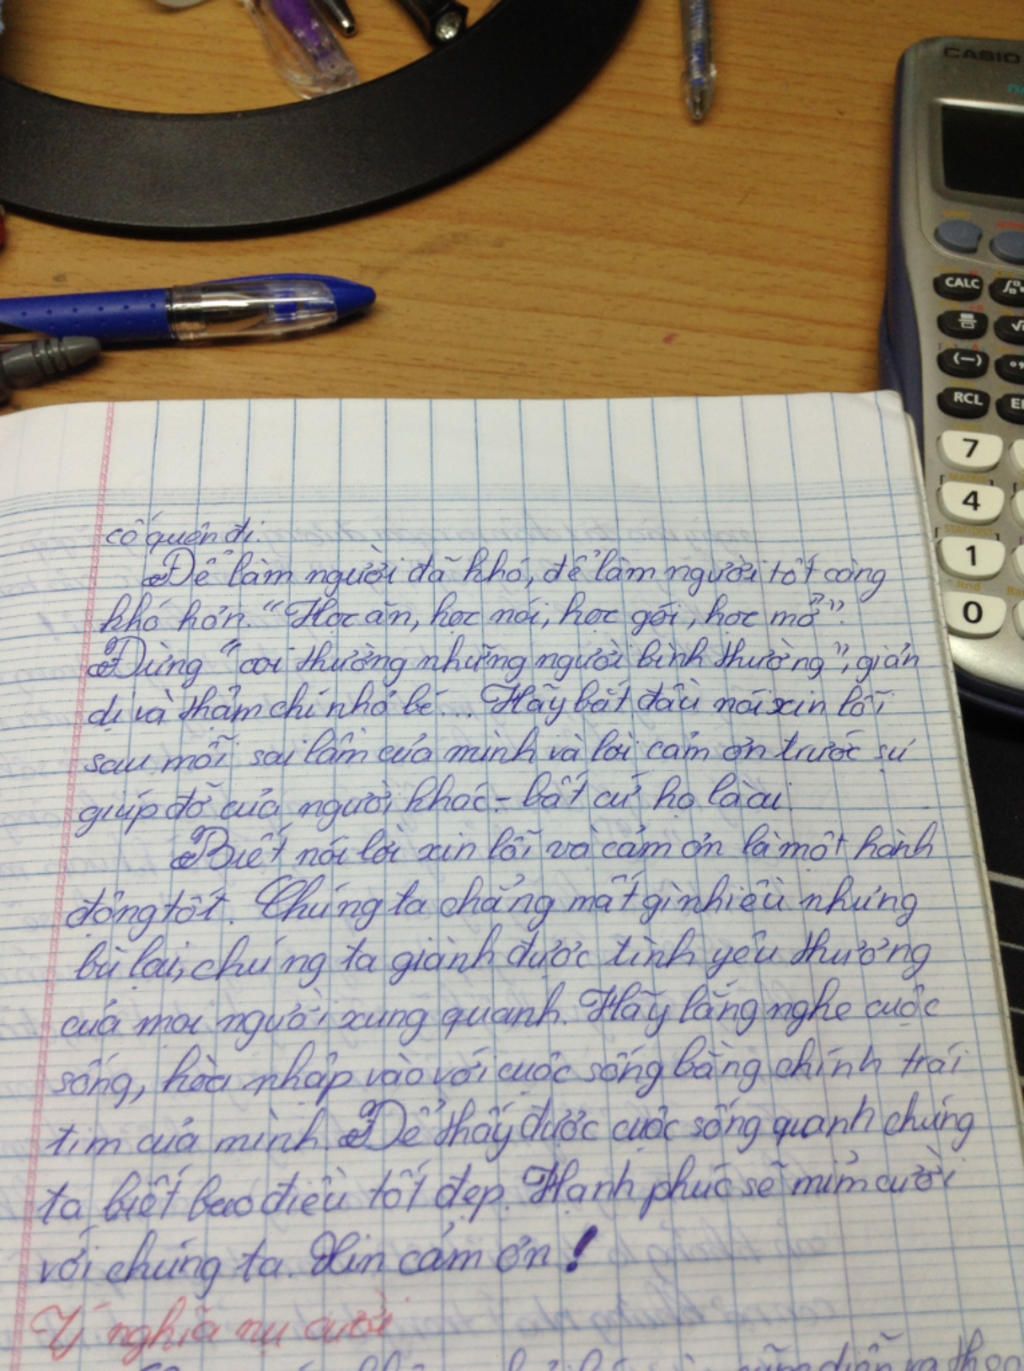 CASIO
CALC
(—)
RCL
7
4
1
0
cố quên đi.
Để làm người đã khó, để làm người tốt càng
khó hơn. “Học ăn, học nói, học gói, học mở”.
Đừng “coi thường những người bình thường”, giản
dị và thậm chí nhỏ bé... Hãy bắt đầu nói xin lỗi
sau mỗi sai lầm của mình và lời cảm ơn trước sự
giúp đỡ của người khác - bất cứ họ là ai.
Biết nói lời xin lỗi và cảm ơn là một hành
động tốt. Chúng ta chẳng mất gì nhiều nhưng
bù lại, chúng ta giành được tình yêu thương
của mọi người xung quanh. Hãy lắng nghe cuộc
sống, hòa nhập vào với cuộc sống bằng chính trái
tim của mình. Để thấy được cuộc sống quanh chúng
ta biết bao điều tốt đẹp. Hạnh phúc sẽ mỉm cười
với chúng ta. Xin cảm ơn!
Ý nghĩa nụ cười